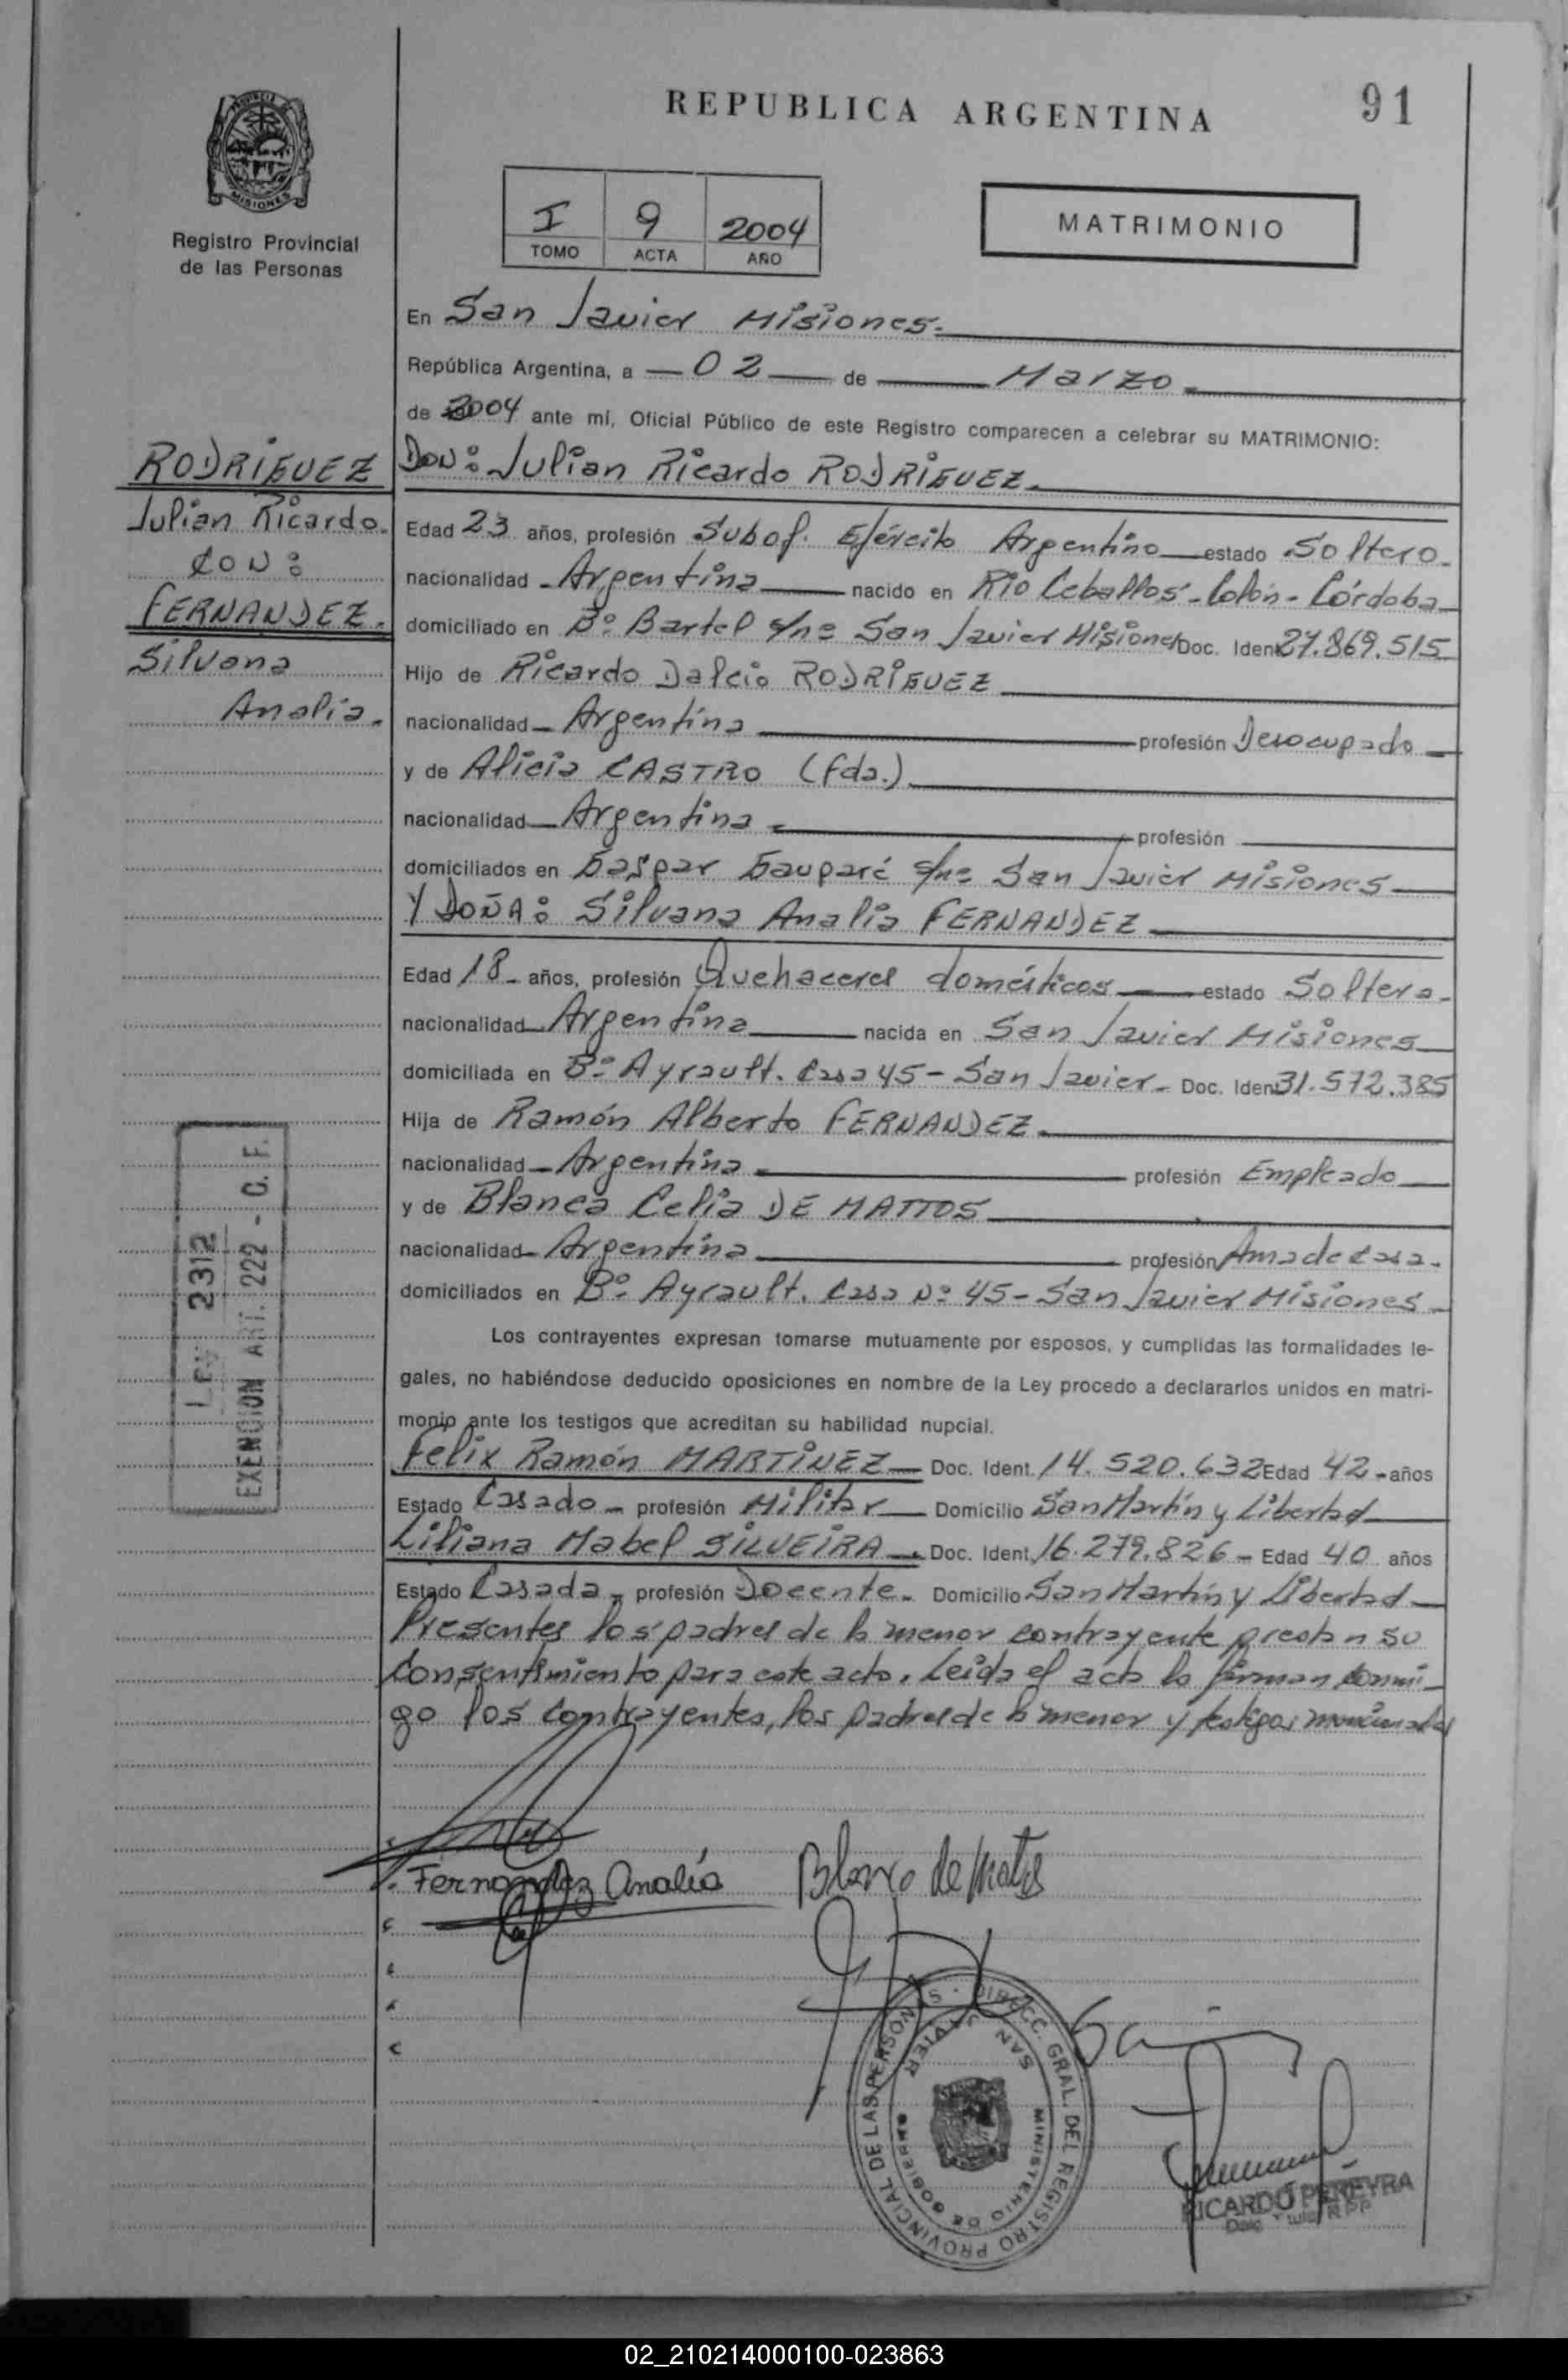 REPUBLICA ARGENTINA
91
PROVINCIA DE
MISIONES
Registro Provincial
de las Personas
I 9 2004
TOMO ACTA AÑO
MATRIMONIO
En San Javier Misiones.
República Argentina, a 02 de Marzo
de 2004 ante mí, Oficial Público de este Registro comparecen a celebrar su MATRIMONIO:
RODRIGUEZ
Julian Ricardo.
CON:
FERNANDEZ.
Silvana
Analia.
DON: Julian Ricardo RODRIGUEZ.
Edad 23 años, profesión Subof. Ejército Argentino estado Soltero.
nacionalidad Argentina nacido en Rio Ceballos - Colón - Córdoba
domiciliado en Bº Bartel s/nº San Javier Misiones Doc. Iden 27.869.515
Hijo de Ricardo Dalcio RODRIGUEZ
nacionalidad Argentina profesión Desocupado
y de Alicia CASTRO (fda.)
nacionalidad Argentina profesión
domiciliados en Gaspar Gauparé s/nº San Javier Misiones
Y DOÑA: Silvana Analia FERNANDEZ
Edad 18 años, profesión Quehaceres domésticos estado Soltera.
nacionalidad Argentina nacida en San Javier Misiones
domiciliada en Bº Ayrault. Casa 45 - San Javier. Doc. Iden 31.572.385
Hija de Ramón Alberto FERNANDEZ.
nacionalidad Argentina profesión Empleado
y de Blanca Celia DE MATTOS
nacionalidad Argentina profesión Ama de casa.
domiciliados en Bº Ayrault. Casa Nº 45 - San Javier Misiones
Los contrayentes expresan tomarse mutuamente por esposos, y cumplidas las formalidades le-
gales, no habiéndose deducido oposiciones en nombre de la Ley procedo a declararlos unidos en matri-
monio ante los testigos que acreditan su habilidad nupcial.
Felix Ramón MARTINEZ Doc. Ident. 14.520.632 Edad 42 años
Estado Casado profesión Militar Domicilio San Martín y Libertad
Liliana Mabel SILVEIRA Doc. Ident. 16.279.826 Edad 40 años
Estado Casada profesión Docente. Domicilio San Martín y Libertad
Presentes los padres de la menor contrayente prestan su
consentimiento para este acto. Leida el acta la firman conmi-
go los contrayentes, los padres de la menor y testigos
LEY 2312
EXENCION ART. 222 - C. F.
Fernandez Analía
Blanca de Matos
DIRECC. GRAL. DEL REGISTRO PROVINCIAL DE LAS PERSONAS
SAN JAVIER
MINISTERIO DE GOBIERNO
RICARDO PEREYRA
02_210214000100-023863